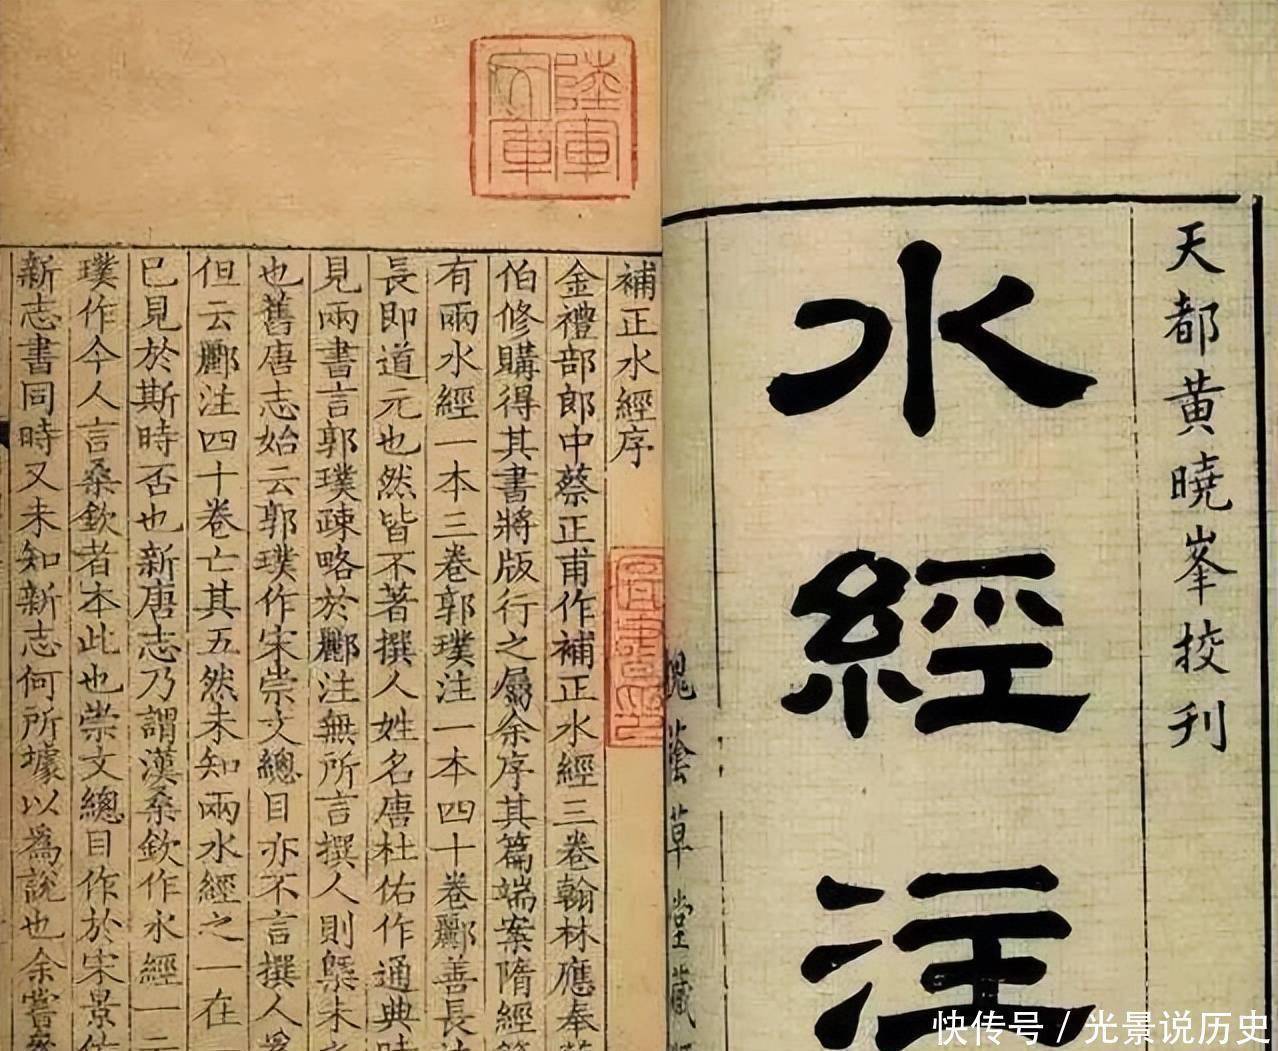 天都黄曉峯挍刊
水經注
槐蔭草堂藏
陸軍文庫
補正水經序
金禮部郎中蔡正甫作補正水經三卷翰林應奉
伯修購得其書將版行之屬余序其篇端案隋經
有兩水經一本三卷郭璞注一本四十卷酈善長
長即道元也然皆不著撰人姓名唐杜佑作通典時
見兩書言郭璞疎略於酈注無所言撰人則槩未
也舊唐志始云郭璞作宋崇文總目亦不言撰人為
但云酈注四十卷亡其五然未知兩水經之一在
已見於斯時否也新唐志乃謂漢桑欽作水經一云
璞作今人言桑欽者本此也崇文總目作於宋景
新志書同時又未知新志何所據以為說也余嘗
快传号/光景说历史